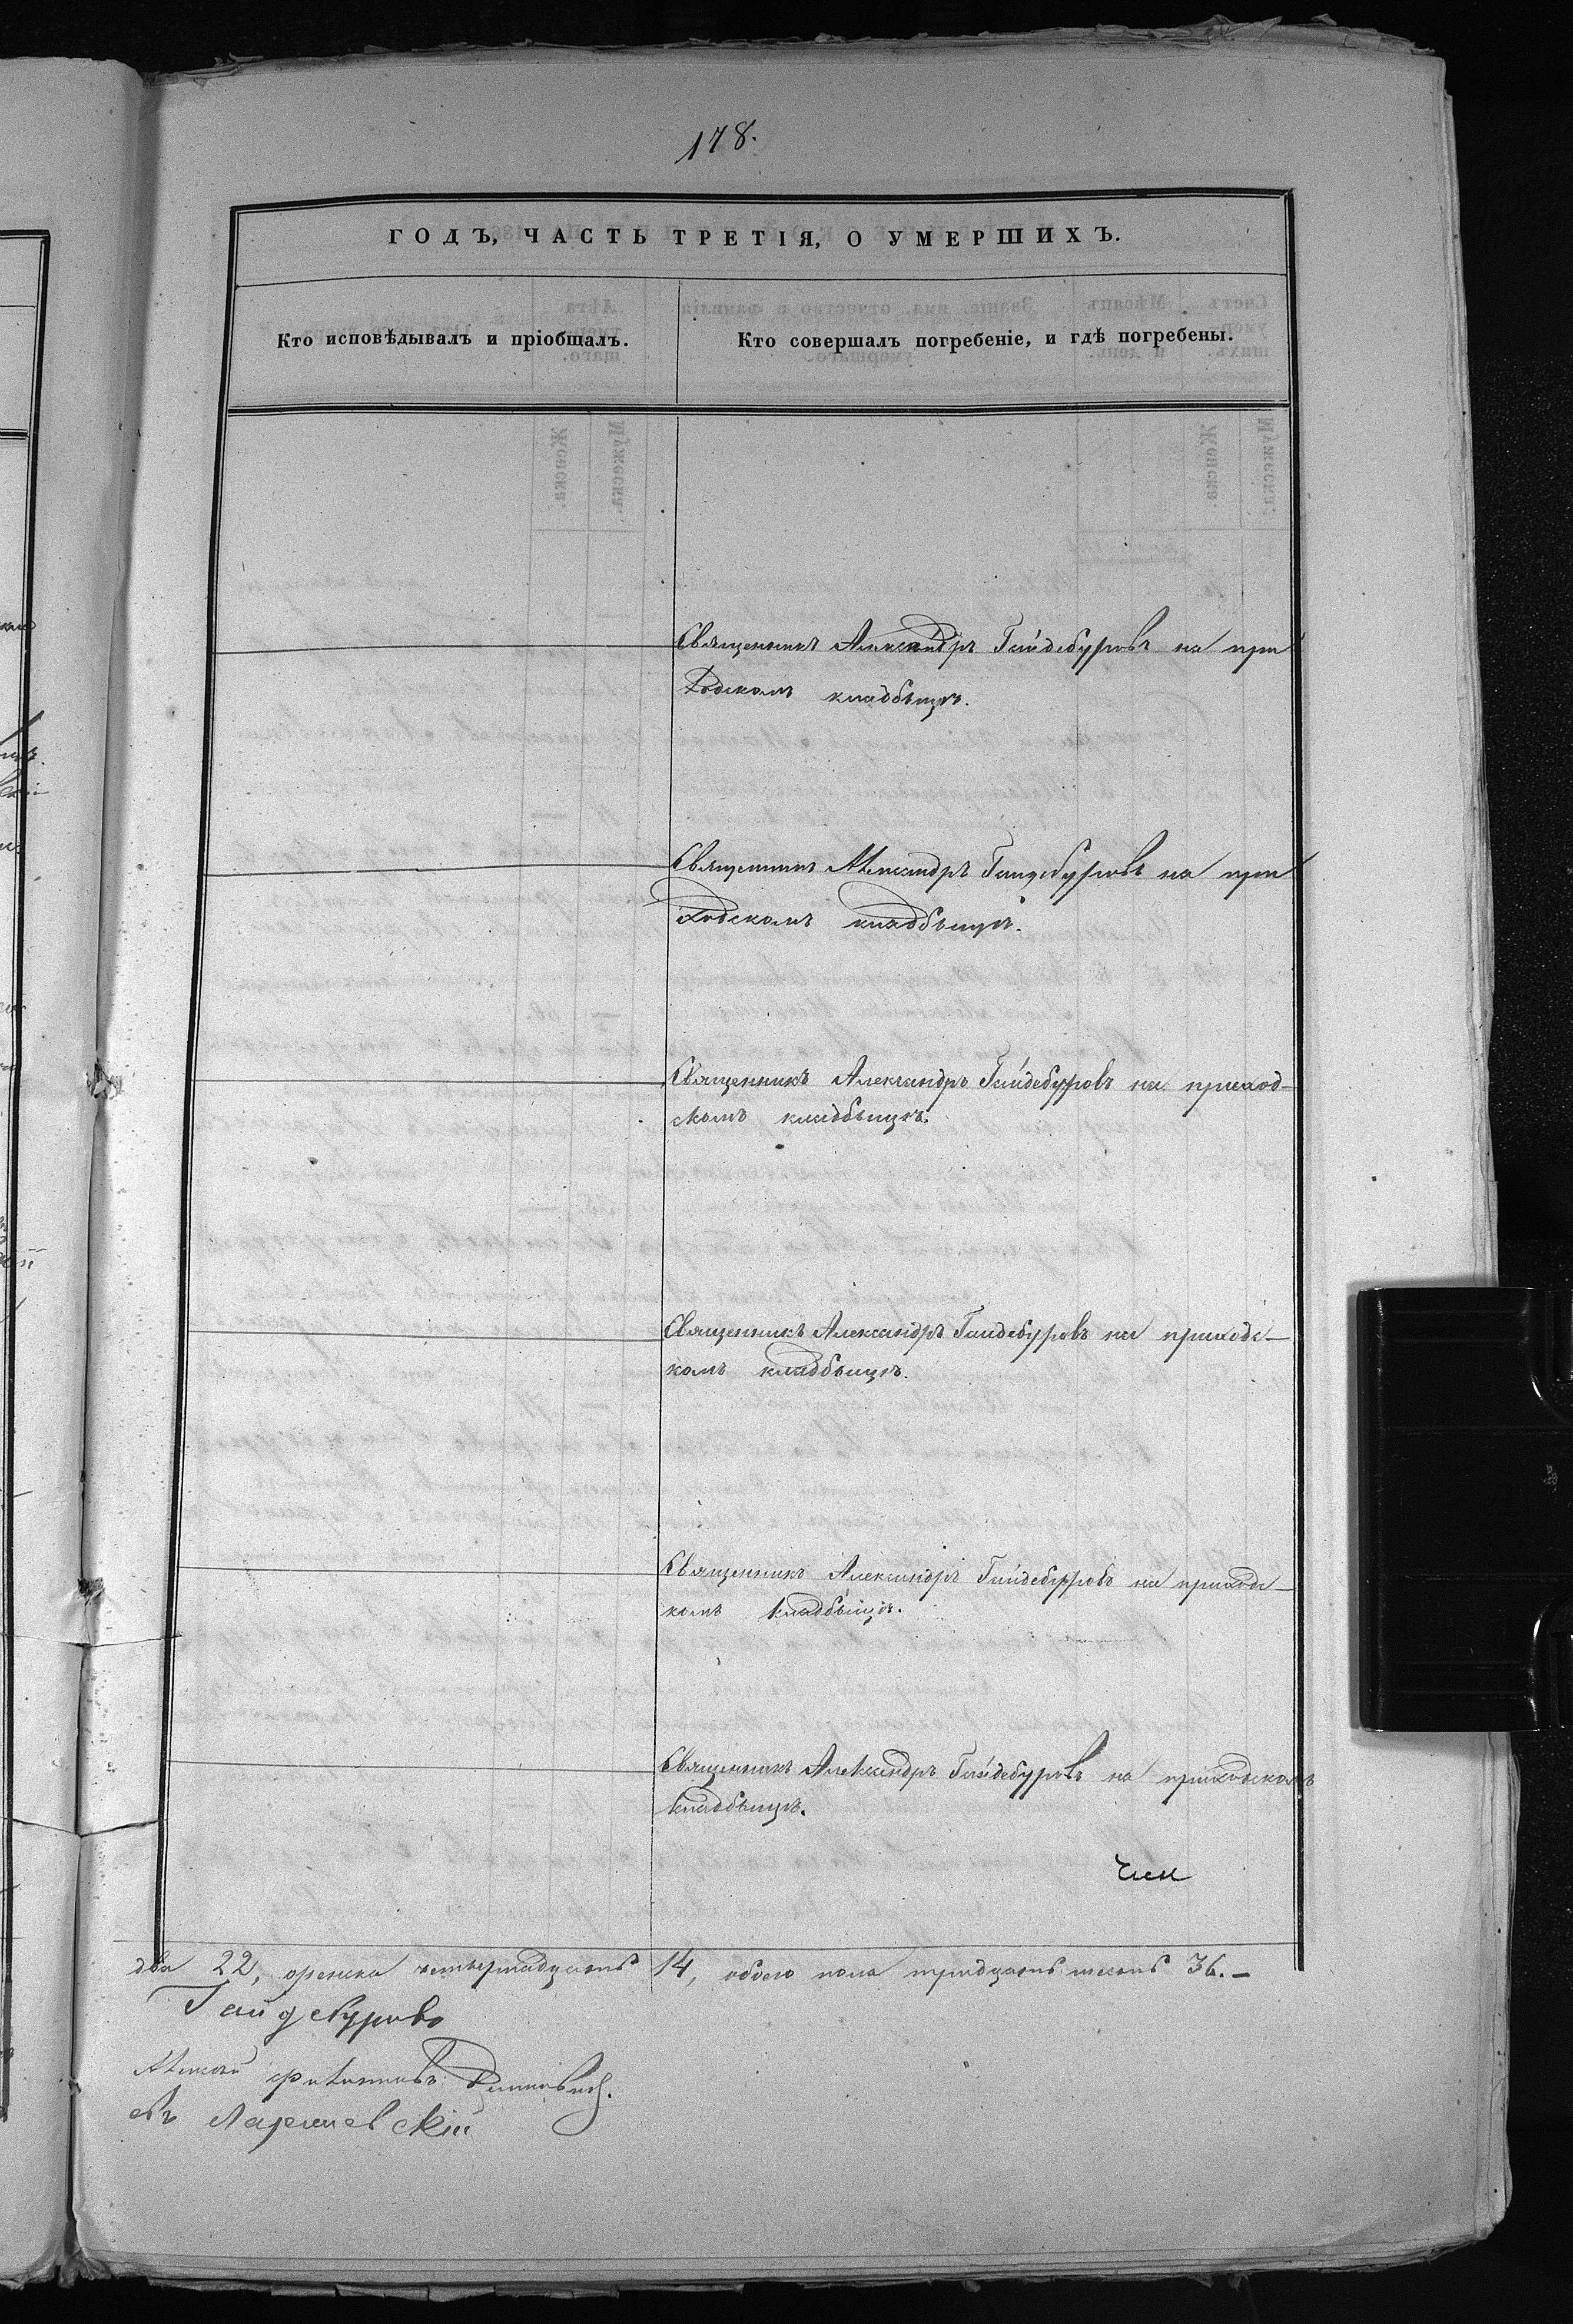 178.
ГОДЪ, ЧАСТЬ ТРЕТІЯ, О УМЕРШИХЪ.
Кто исповѣдывалъ и пріобщалъ.
Кто совершалъ погребеніе, и гдѣ погребены.
Священникъ Александръ Гайдебуровъ на при
ходскомъ кладбищѣ.
Священникъ Александръ Гайдебуровъ на при
ходскомъ кладбищѣ.
Священникъ Александръ Гайдебуровъ на приход-
скомъ кладбищѣ.
Священникъ Александръ Гайдебуровъ на приходс-
комъ кладбищѣ.
Священникъ Александръ Гайдебуровъ на приходс-
комъ кладбищѣ.
Священникъ Александръ Гайдебуровъ на приходскомъ
кладбищѣ.
два 22, женска четырнадцать 14, обоего пола тридцать шесть 36.—
Гайдебуровъ